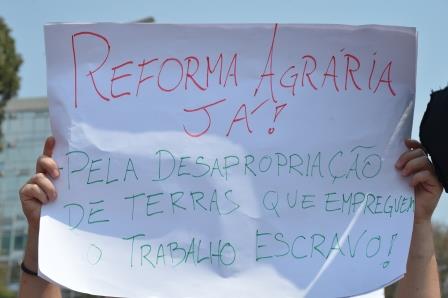 REFORMA AGRÁRIA
JÁ!
PELA DESAPROPRIAÇÃO
DE TERRAS QUE EMPREGUEM
O TRABALHO ESCRAVO!